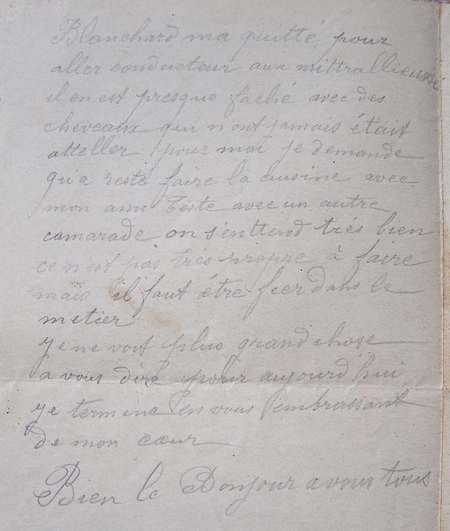 Blanchard ma quitté pour
aller conducteur aux mittrallieuses
il en est presque faché avec des
cheveaux qui n'ont jamais était
atteller pour moi je demande
qu'a resté faire la cuisine avec
mon ami Teste avec un autre
camarade on s'enttend très bien
ce n'est pas très propre à faire
mais il faut être fier dans le
metier
je ne voit plus grand chose
a vous dire pour aujourd'hui
je termine en vous embrassant
de mon cœur
Bien le Bonjour a vous tous